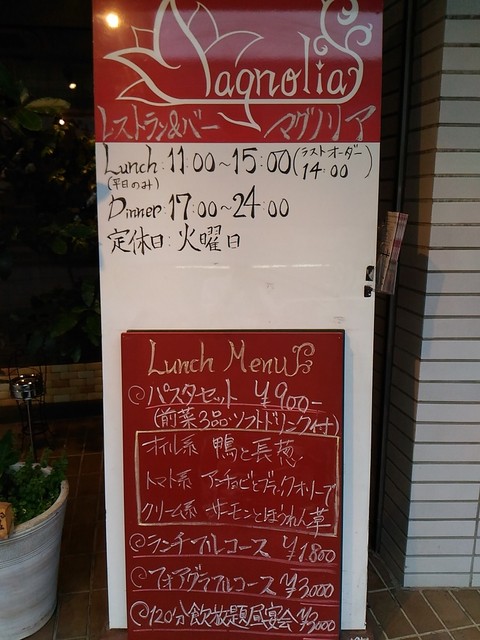 Magnolia
レストラン&バー マグノリア
Lunch:11:00~15:00(ラストオーダー 14:00)
(平日のみ)
Dinner:17:00~24:00
定休日:火曜日
Lunch Menu
◎パスタセット ¥900-
(前菜3品・ソフトドリンク付)
オイル系 鴨と長葱
トマト系 アンチョビとブラックオリーブ
クリーム系 サーモンとほうれん草
◎ランチフルコース ¥1800
◎フォアグラフルコース ¥3000
◎120分飲放題昼宴会 ¥3000